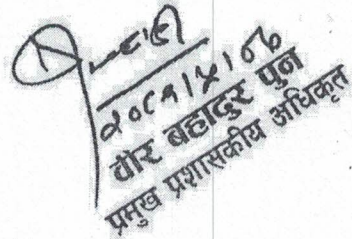 २०८१।४।०७
वीर बहादुर पुन
प्रमुख प्रशासकीय अधिकृत